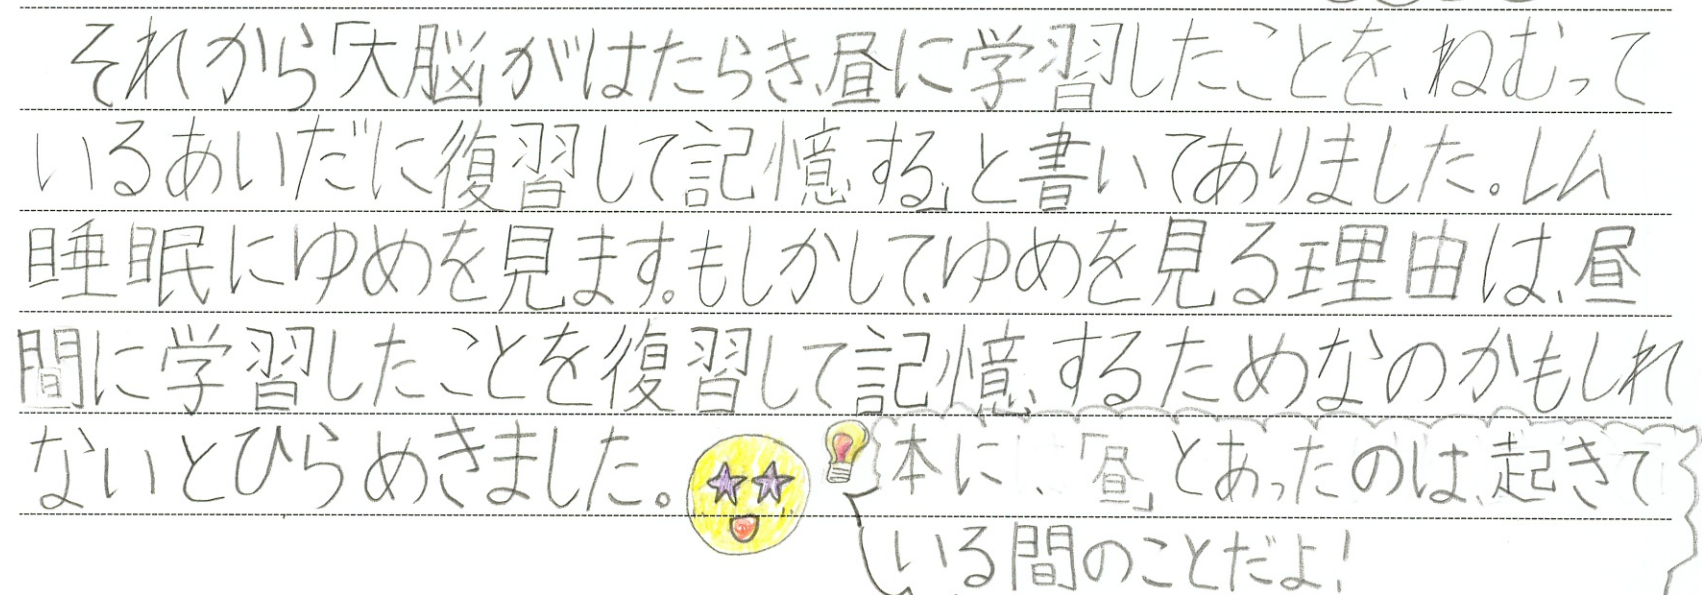 それから「大脳がはたらき、昼に学習したことを、ねむって
いるあいだに復習して記憶する」と書いてありました。レム
睡眠にゆめを見ます。もしかして、ゆめを見る理由は、昼
間に学習したことを復習して記憶するためなのかもしれ
ないとひらめきました。
本に、「昼」とあったのは、起きて
いる間のことだよ!